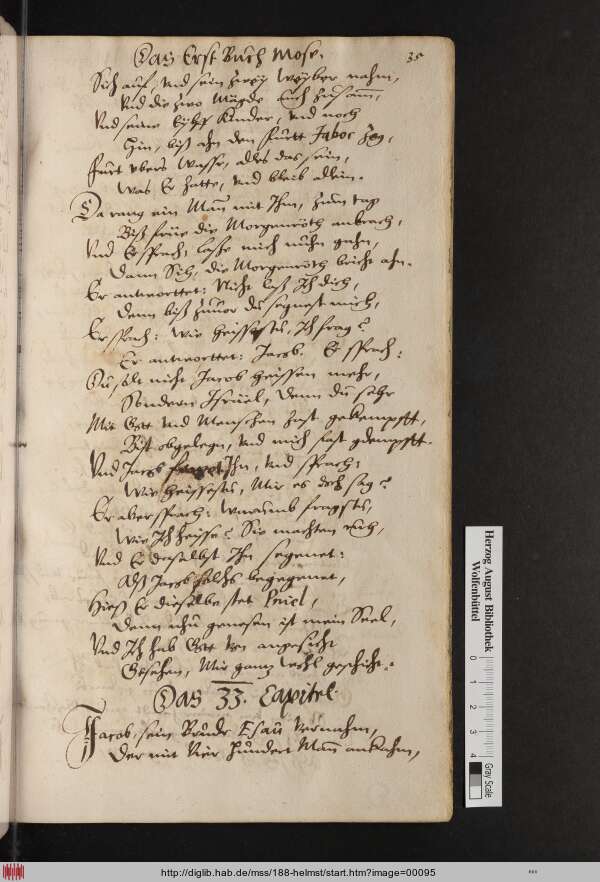 Das Erst Buch Mose.
35
Sich auf, vnd sein zwey Weyber nahm,
Vnd die zwo Mägde auch zusam̃,
Vnd seine Eylff Kinder, vnd noch
Hin, biß ahn den Furtt Jaboc zog,
Furt vbers Wasser, alles das sein,
Was Er hatte, vnd bleib allein.
Da rang ein Man̄ mit Ihm, zum tag
Biß früe die Morgenröth anbrach,
Vnd Er sprach, lasse mich nuhn gehn,
Dann Sih, die Morgenröth bricht ahn.
Er antworttet: Nicht laß Ich dich,
Denn biß zuuor du segnest mich,
Er sprach: Wie heissestu, Ich frag?
Er antworttet: Jacob. Er sprach:
Du solt nicht Jacob heissen mehr,
Sondern Israel, denn du sehr
Mit Gott vnd Menschen hast gekempfft,
Bist obgelegn, vnd mich fast gdempfft.
Vnd Jacob Ihn, vnd sprach:
Wie heissestu, Mir es doch sag?
Er aber sprach: Warumb fragstu,
Wie Ich heisse? Sie machten
Vnd Er daselbst Ihn segenet:
Alß Jacob solchs begegenet,
Hieß Er dieselbe stet Pniel,
Denn nhu genesen ist mein Seel,
Vnd Ich hab Gott von angesicht
Gesehen, Mir gantz wohl geschicht.
Das 33. Capitel.
Jacob, sein Bruder Esau vernahm,
Der mit Vier hundert Man̄ ankahm,
Herzog August Bibliothek
Wolfenbüttel
0 1 2 3 4
Gray Scale
http://diglib.hab.de/mss/188-helmst/start.htm?image=00095